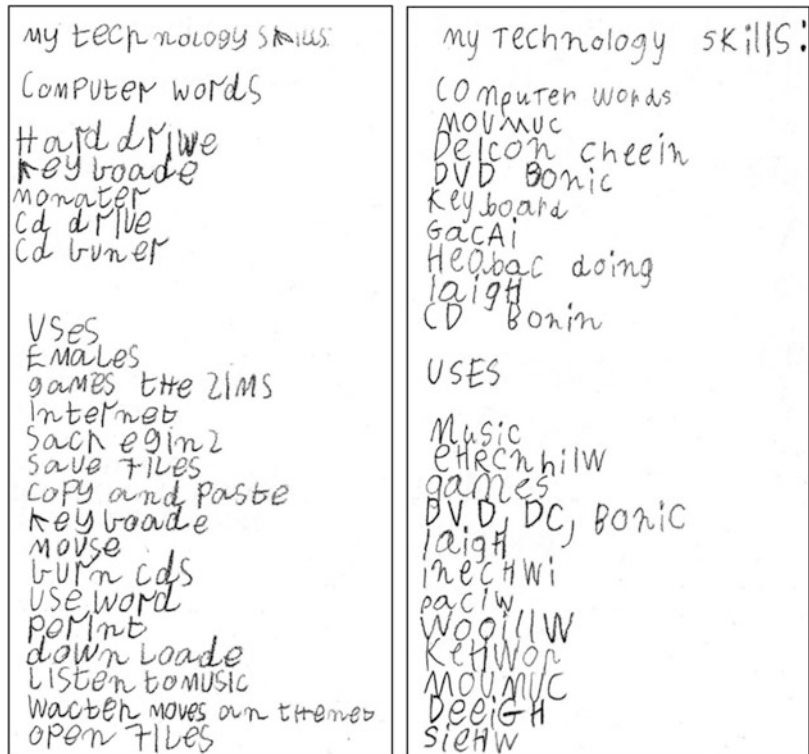 My technology skills:
Computer words
Hard driwe
keyboade
monater
cd drive
cd buner
USes
EMales
games the ZIMS
Internet
Sach egin2
save files
copy and paste
keyboade
mouse
burn cds
use word
porint
down Loade
Listen tomusic
wacteh moves an thenet
open files
my Technology skills:
Computer words
MOUMUC
Delcon cheein
DVD Bonic
keyboard
GacAi
HeObac doing
laigH
CD Bonin
USES
Music
eHRCnhilW
games
DVD, DC, BoniC
laigH
inecHWi
paciw
WooillW
KeHWOr
MOUMUC
DeeiGH
SieHW